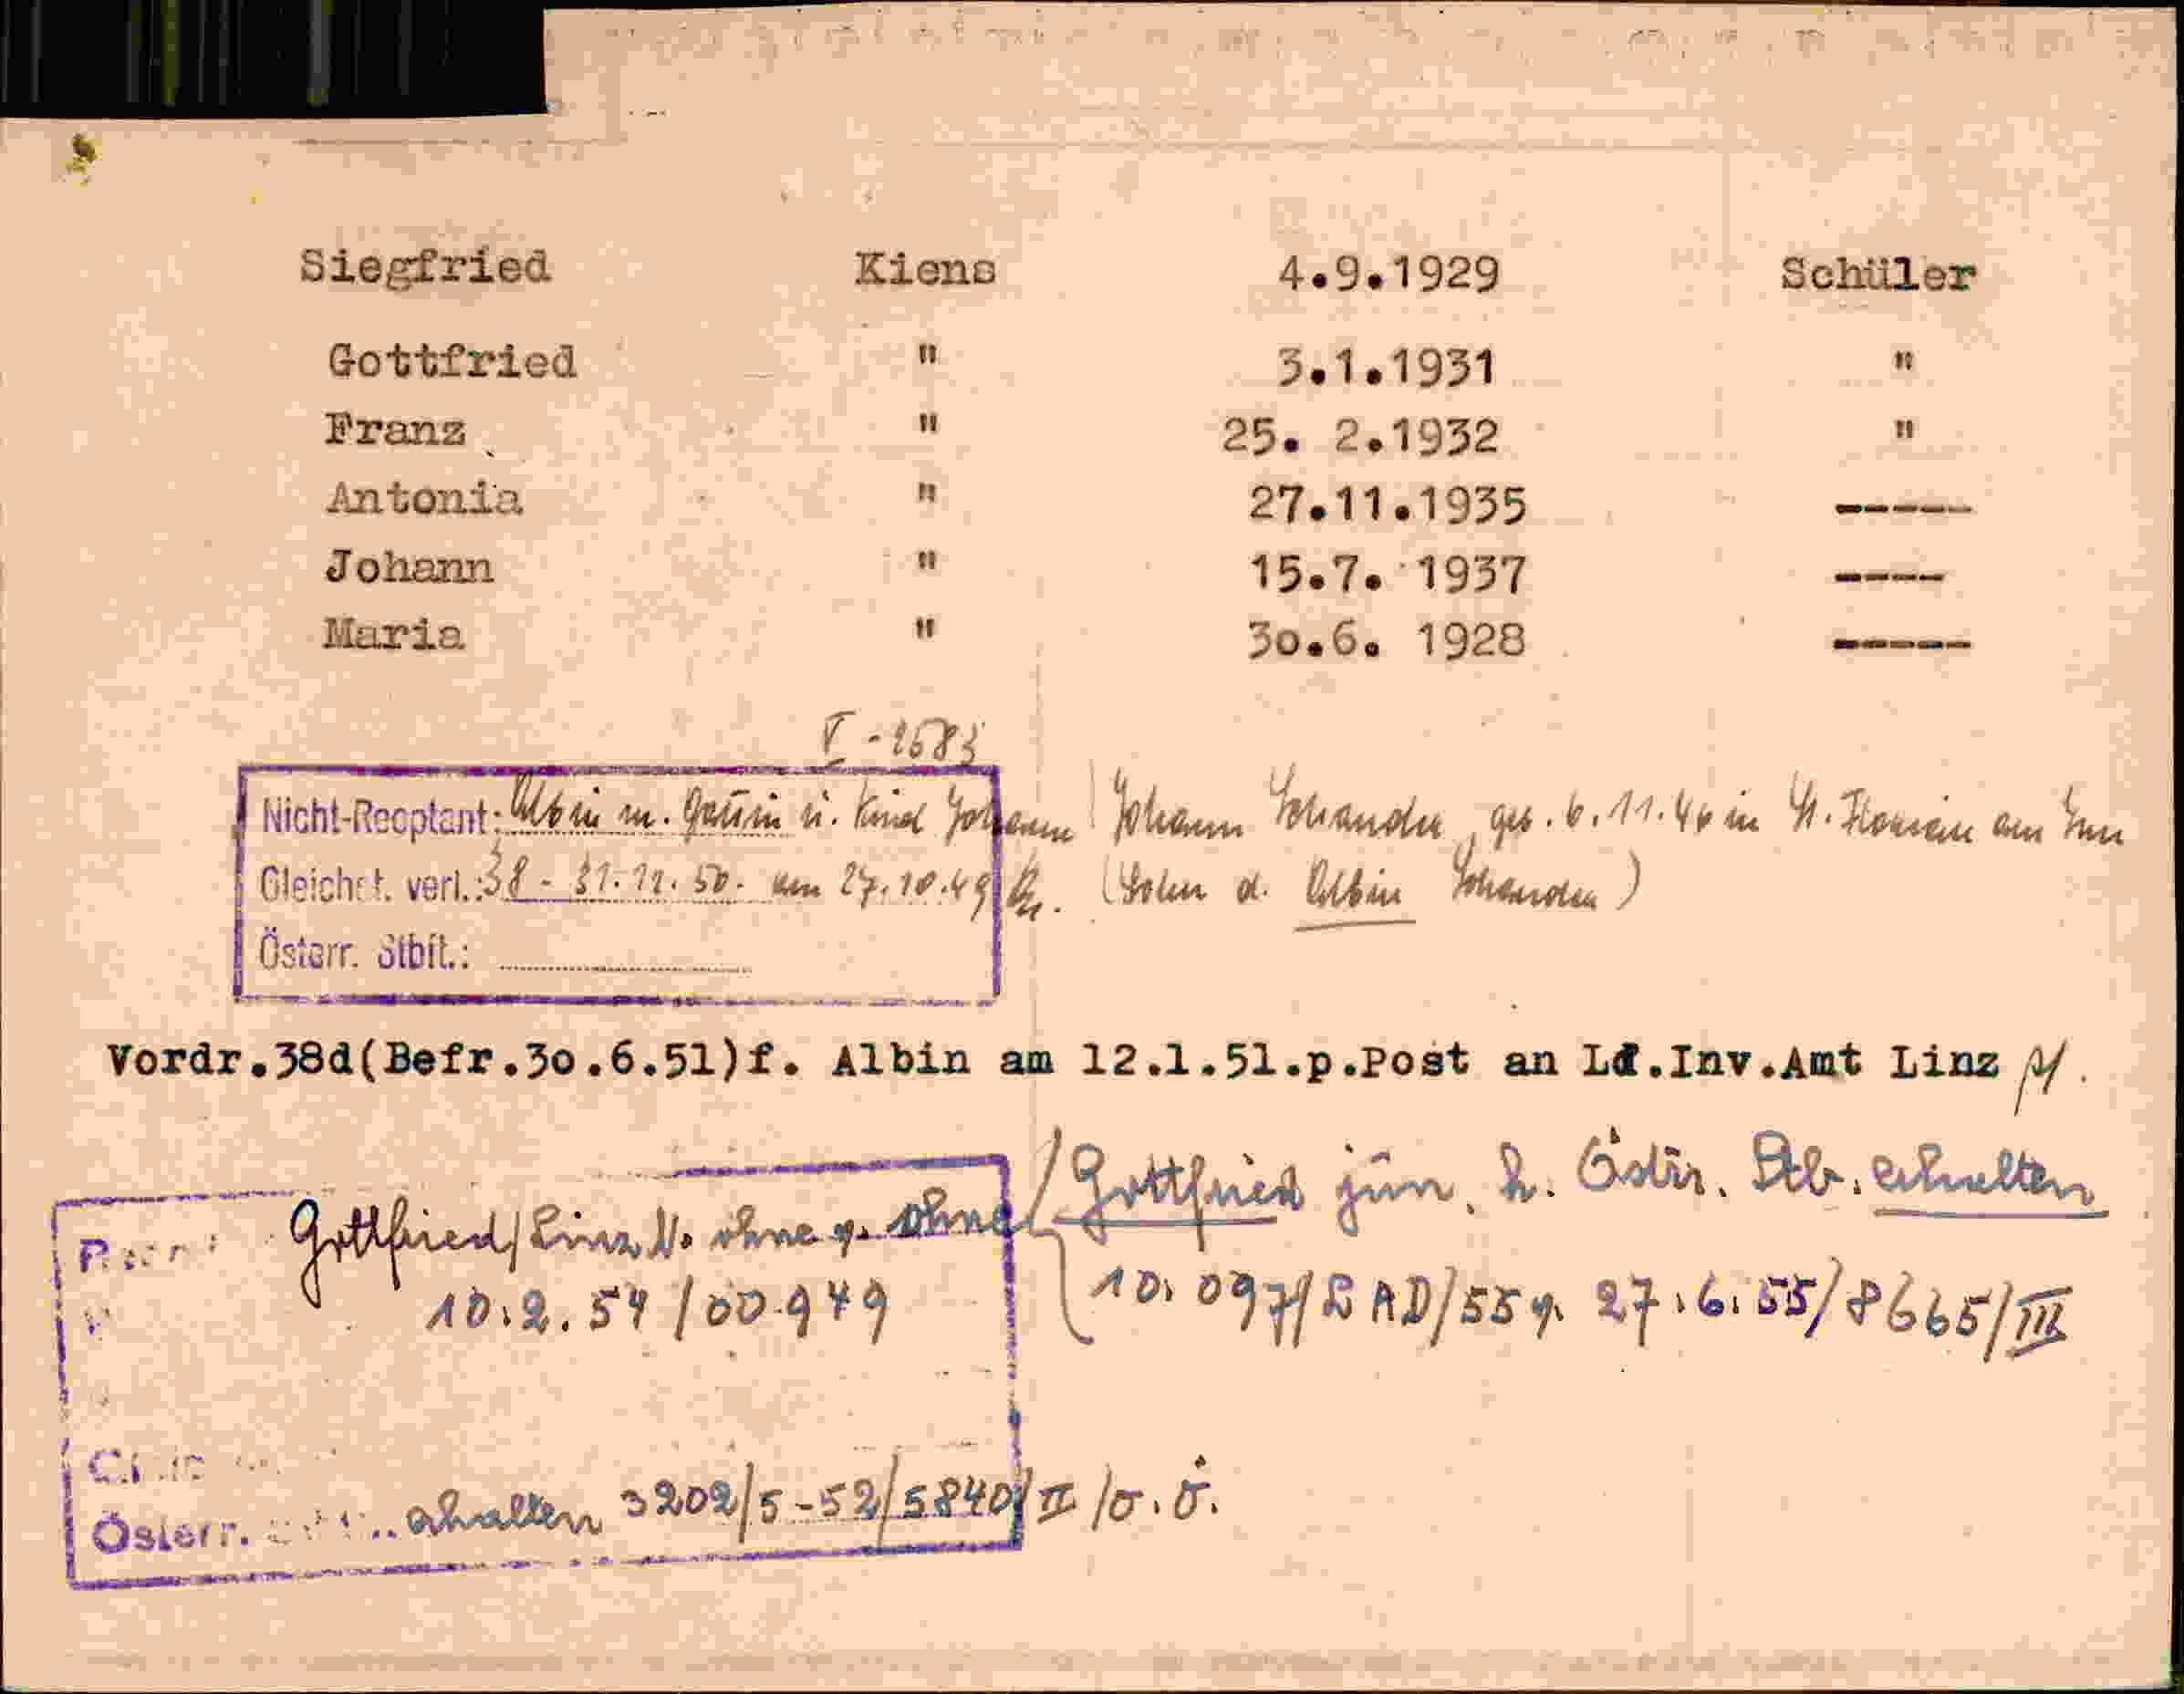 Siegfried Kiens 4.9.1929 Schüler
Gottfried " 3.1.1931 "
Franz " 25. 2.1932 "
Antonia " 27.11.1935 -----
Johann " 15.7. 1937 ----
Maria " 30.6. 1928 -----
V - 2583
Nicht-Reoptant: Albin m. Gattin u. Kind Johann (Johann Schander, geb. 6.11.46 in St. Florian am Inn
Gleichst. verl.: 38 - 31.12.50. am 27.10.49 (Sohn d. Albin Schander)
Österr. Stbft.:
Vordr.38d(Befr.30.6.51)f. Albin am 12.1.51.p.Post an Ld.Inv.Amt Linz
Gottfried jun. h. Österr. Stb. erhalten
Gottfried/Linz V. ohne g. ohne
10.097/LAD/55 g. 27.6.55/8665/III
10.2.54/00949
Österr. erhalten 3202/5-52/5840/II/o.ö.